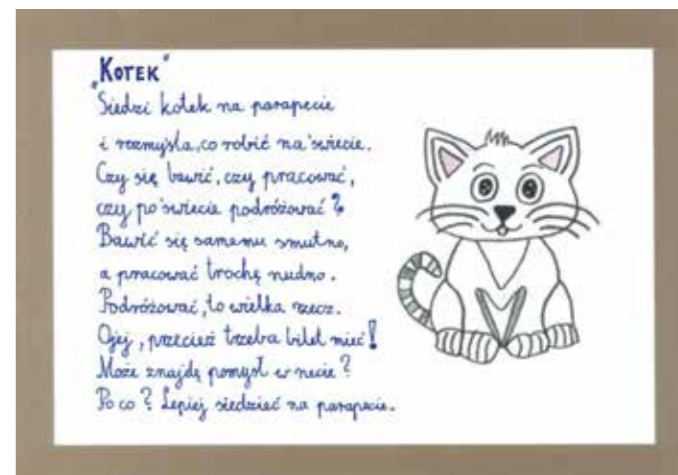 „Kotek"
Siedzi kotek na parapecie
i rozmyśla, co robić na świecie.
Czy się bawić, czy pracować,
czy po świecie podróżować?
Bawić się samemu smutno,
a pracować trochę nudno.
Podróżować, to wielka rzecz.
Ojej, przecież trzeba bilet mieć!
Może znajdę pomysł w necie?
Po co? Lepiej siedzieć na parapecie.